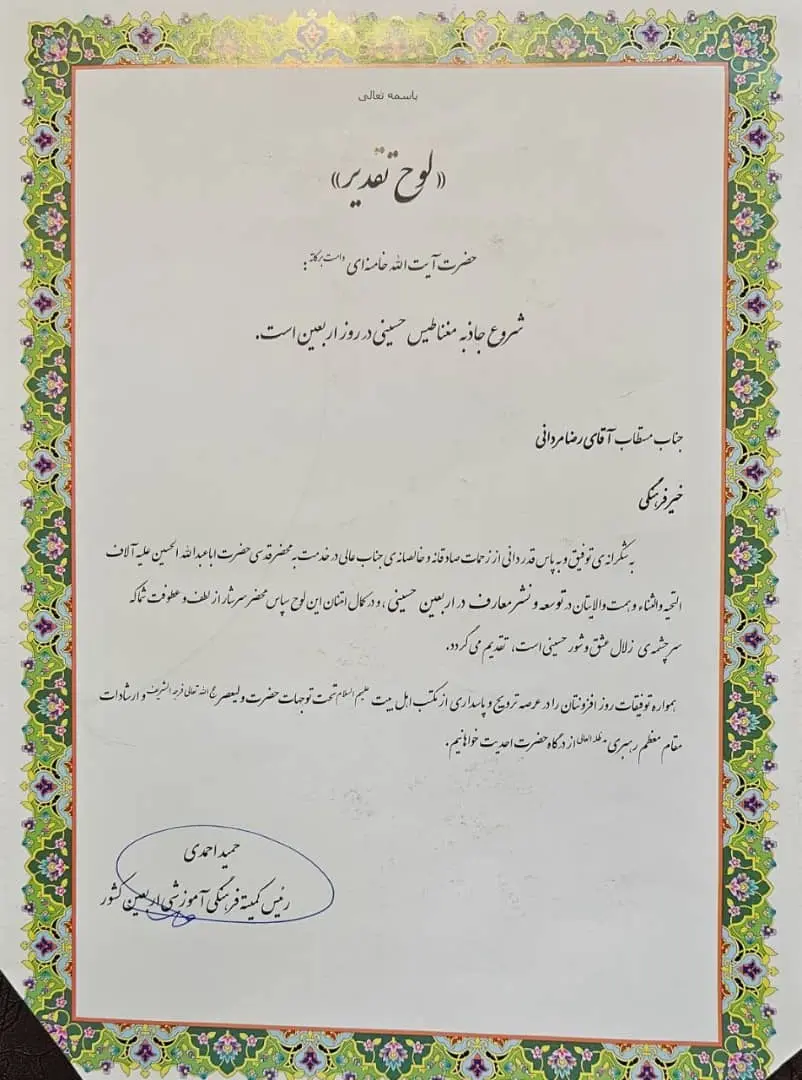 باسمه تعالی
«لوح تقدیر»
حضرت آیت الله خامنه ای دامت برکاته:
شروع جاذبه مغناطیس حسینی در روز اربعین است.
جناب مستطاب آقای رضا مردانی
خیر فرهنگی
به شکرانه ی توفیق و به پاس قدردانی از زحمات صادقانه و خالصانه ی جناب عالی در خدمت به محضر قدسی حضرت اباعبدالله الحسین علیه آلاف
التحیه والثناء و همت والایتان در توسعه و نشر معارف در اربعین حسینی، و در کمال امتنان این لوح سپاس محضر سرشار از لطف و عطوفت شما که
سرچشمه ی زلال عشق و شور حسینی است، تقدیم می گردد.
همواره توفیقات روز افزونتان را در عرصه ترویج و پاسداری از مکتب اهل بیت علیهم السلام تحت توجهات حضرت ولیعصر عج الله تعالی فرجه الشریف و ارشادات
مقام معظم رهبری مدظله العالی از درگاه حضرت احدیت خواهانیم.
حمید احمدی
رئیس کمیته فرهنگی آموزشی اربعین کشور